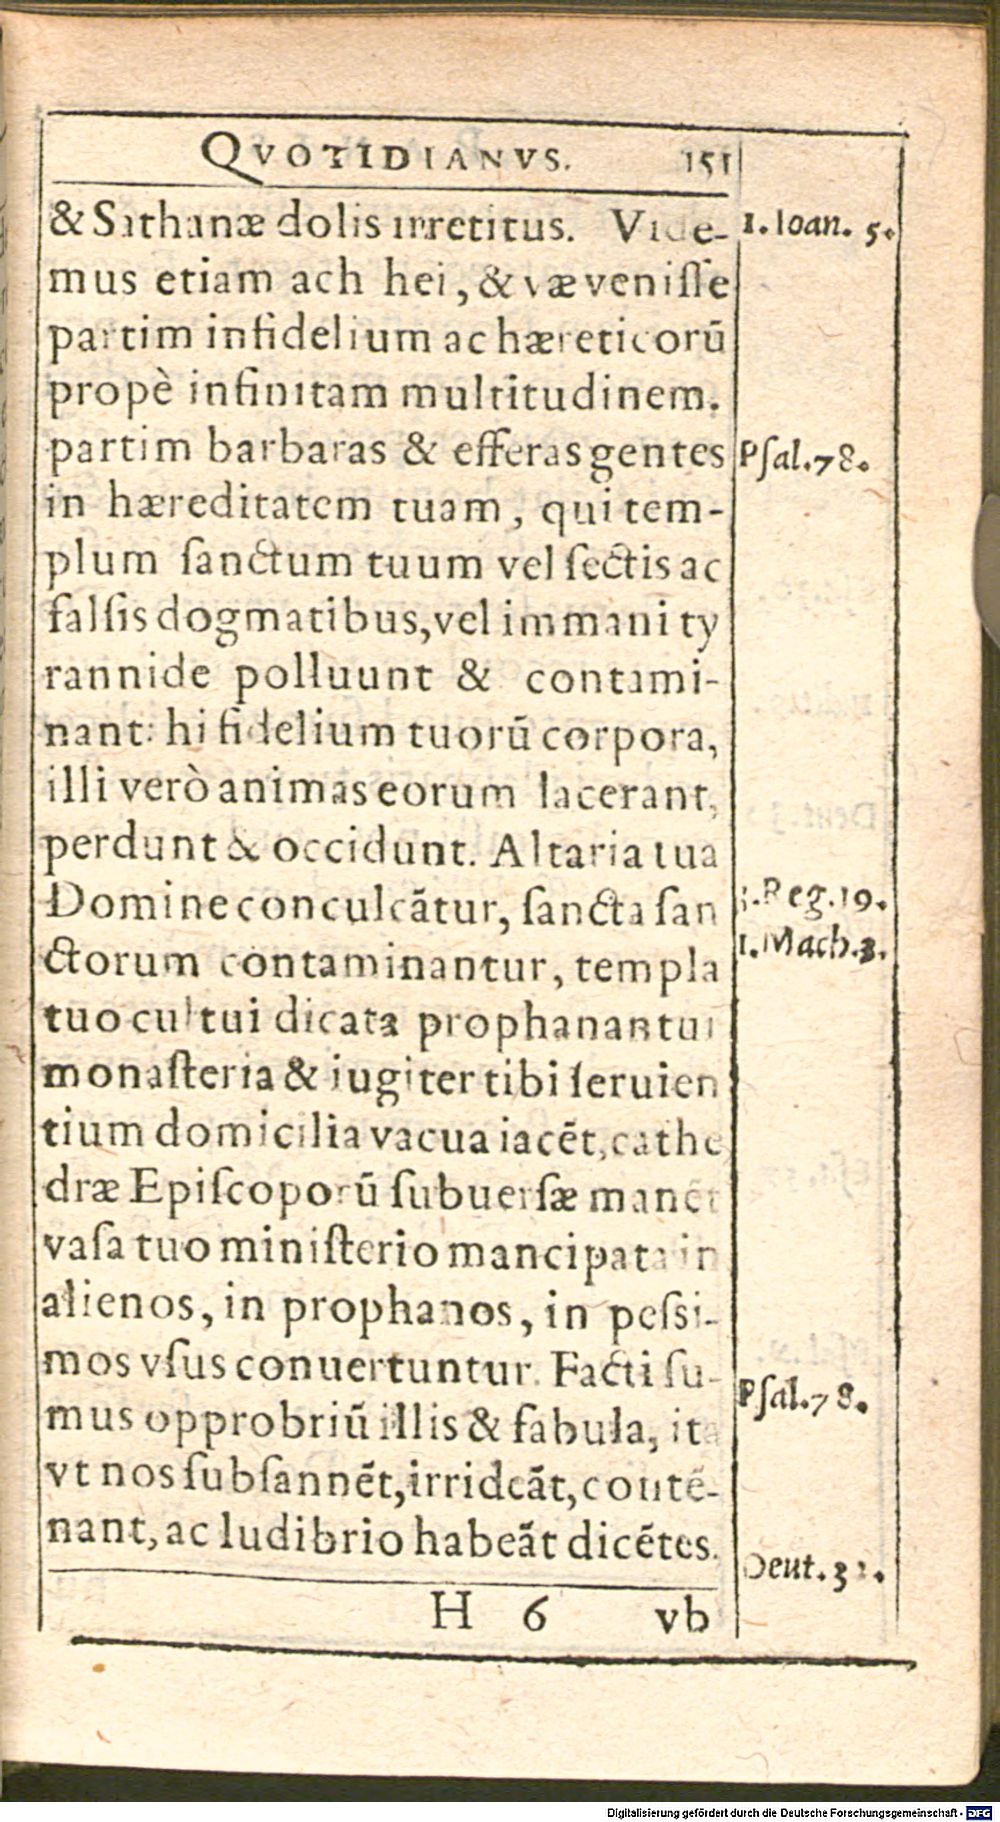 QVOTIDIANVS. 151
& Sathanæ dolis irretitus. Vide-
mus etiam ach hei, & væ venisse
partim infidelium ac hæreticorū
propè infinitam multitudinem.
partim barbaras & efferas gentes
in hæreditatem tuam, qui tem-
plum sanctum tuum vel sectis ac
falsis dogmatibus, vel immani ty
rannide polluunt & contami-
nant: hi fidelium tuorū corpora,
illi verò animas eorum lacerant,
perdunt & occidunt. Altaria tua
Domine conculcātur, sancta san
ctorum contaminantur, templa
tuo cultui dicata prophanantur
monasteria & iugiter tibi seruien
tium domicilia vacua iacēt, cathe
dræ Episcoporū subuersæ manēt
vasa tuo ministerio mancipata in
alienos, in prophanos, in pessi-
mos vsus conuertuntur. Facti su-
mus opprobriū illis & fabula, ita
vt nos subsannēt, irrideāt, contē-
nant, ac ludibrio habeāt dicētes.
H 6 vb
1. Ioan. 5.
Psal. 78.
3. Reg. 19.
1. Mach. 3.
Psal. 78.
Deut. 32.
Digitalisierung gefördert durch die Deutsche Forschungsgemeinschaft - DFG